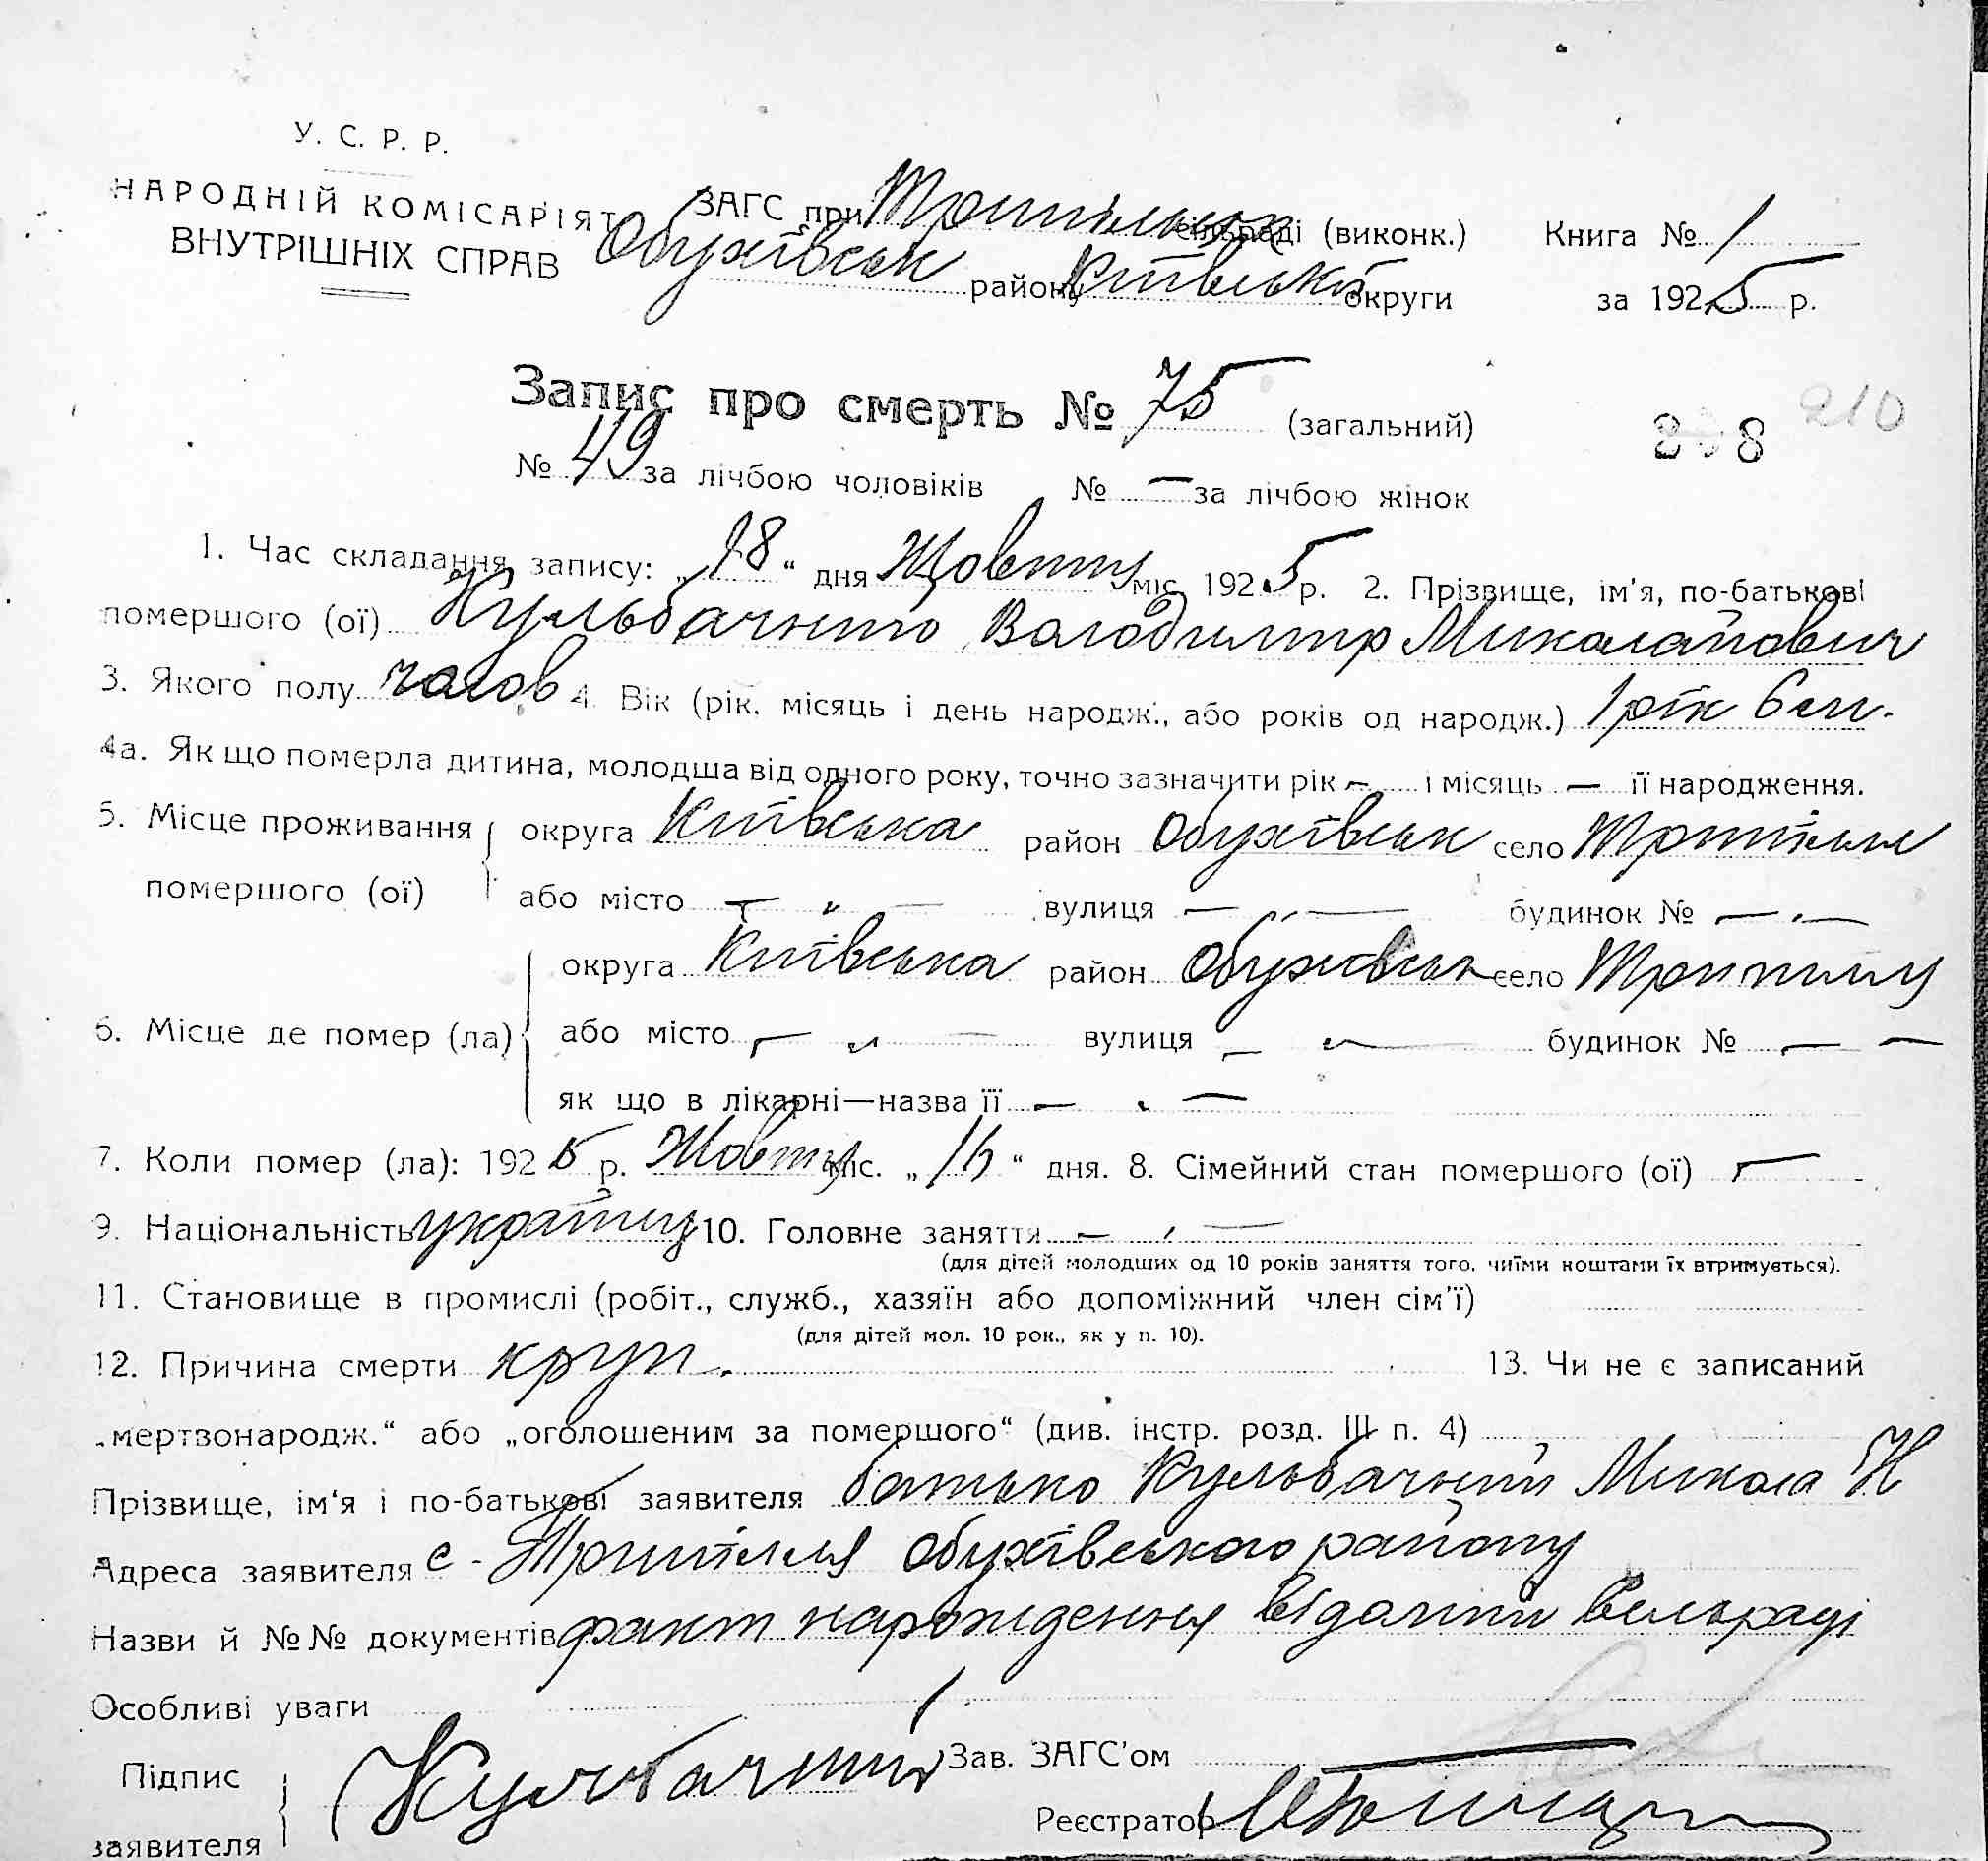 У. С. Р. Р.
НАРОДНІЙ КОМІСАРІЯТ
ВНУТРІШНІХ СПРАВ
ЗАГС при Трипільськ сільраді (виконк.) Книга № 1
Обухівськ району Київської округи за 1925 р.
Запис про смерть № 75 (загальний)
210
№ 49 за лічбою чоловіків № — за лічбою жінок
1. Час складання запису: „18“ дня Жовтня міс. 1925 р. 2. Прізвище, ім'я, по-батькові
помершого (ої) Кульбачний Володимир Миколайович
3. Якого полу чолов 4. Вік (рік. місяць і день народж., або років од народж.) 1 рік 6 м.
4а. Як що померла дитина, молодша від одного року, точно зазначити рік — і місяць — її народження.
5. Місце проживання округа Київська район Обухівськ село Трипілля
помершого (ої) або місто — „ — вулиця — „ — будинок № — „ —
округа Київська район Обухівськ село Трипіллу
6. Місце де помер (ла) або місто — „ — вулиця — „ — будинок № — —
як що в лікарні—назва її — „ —
7. Коли помер (ла): 1925 р. Жовтня міс. „16“ дня. 8. Сімейний стан помершого (ої) —
9. Національність українц 10. Головне заняття — „ —
(для дітей молодших од 10 років заняття того, чиїми коштами їх втримується).
11. Становище в промислі (робіт., служб., хазяїн або допоміжний член сім'ї)
(для дітей мол. 10 рок., як у п. 10).
12. Причина смерти круп. 13. Чи не є записаний
„мертвонародж.“ або „оголошеним за помершого“ (див. інстр. розд. III п. 4)
Прізвище, ім'я і по-батькові заявителя батько Кульбачний Микола Н
Адреса заявителя с - Трипілля Обухівського району
Назви й №№ документів факт народження відомий сельраді
Особливі уваги
Підпис Кульбачний Зав. ЗАГС'ом
заявителя Реєстратор